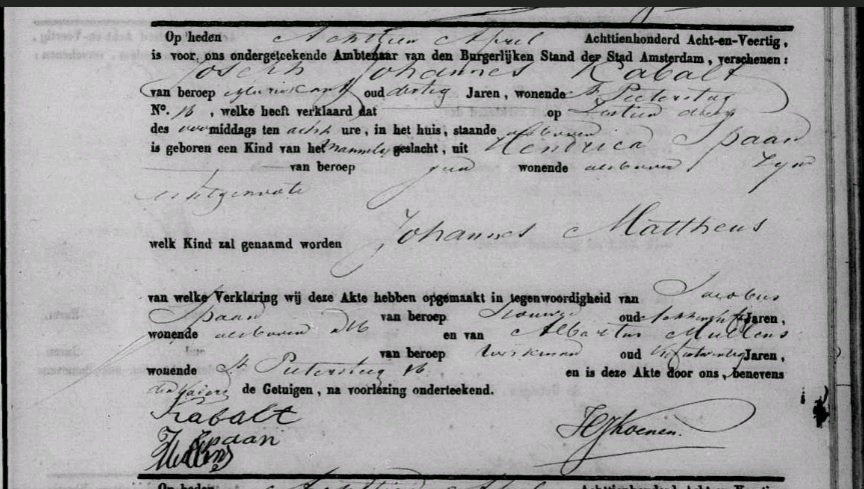 Op heden Achttien April Achttienhonderd Acht-en-Veertig,
is voor ons ondergeteekende Ambtenaar van den Burgerlijken Stand der Stad Amsterdam, verschenen:
Joseph Johannes Kabalt
van beroep oud dertig Jaren, wonende St Pietersteeg
No. 16, welke heeft verklaard dat op dezer
des voormiddags ten acht ure, in het huis, staande alsboven
is geboren een Kind van het Mannelyk geslacht, uit Hendrica Spaan
van beroep geen wonende alsboven Zyne
echtgenoote
welk Kind zal genaamd worden Johannes Mattheus
van welke Verklaring wij deze Akte hebben opgemaakt in tegenwoordigheid van Jacobus
Spaan van beroep oud Jaren,
wonende alsboven 16 en van Albartus Mullens
van beroep Werkman oud Jaren,
wonende St Pietersteeg 16 en is deze Akte door ons, benevens
de Getuigen, na voorlezing onderteekend.
Kabalt
J Spaan
Mullens
Op heden Achttienhonderd Acht-en-Veertig,